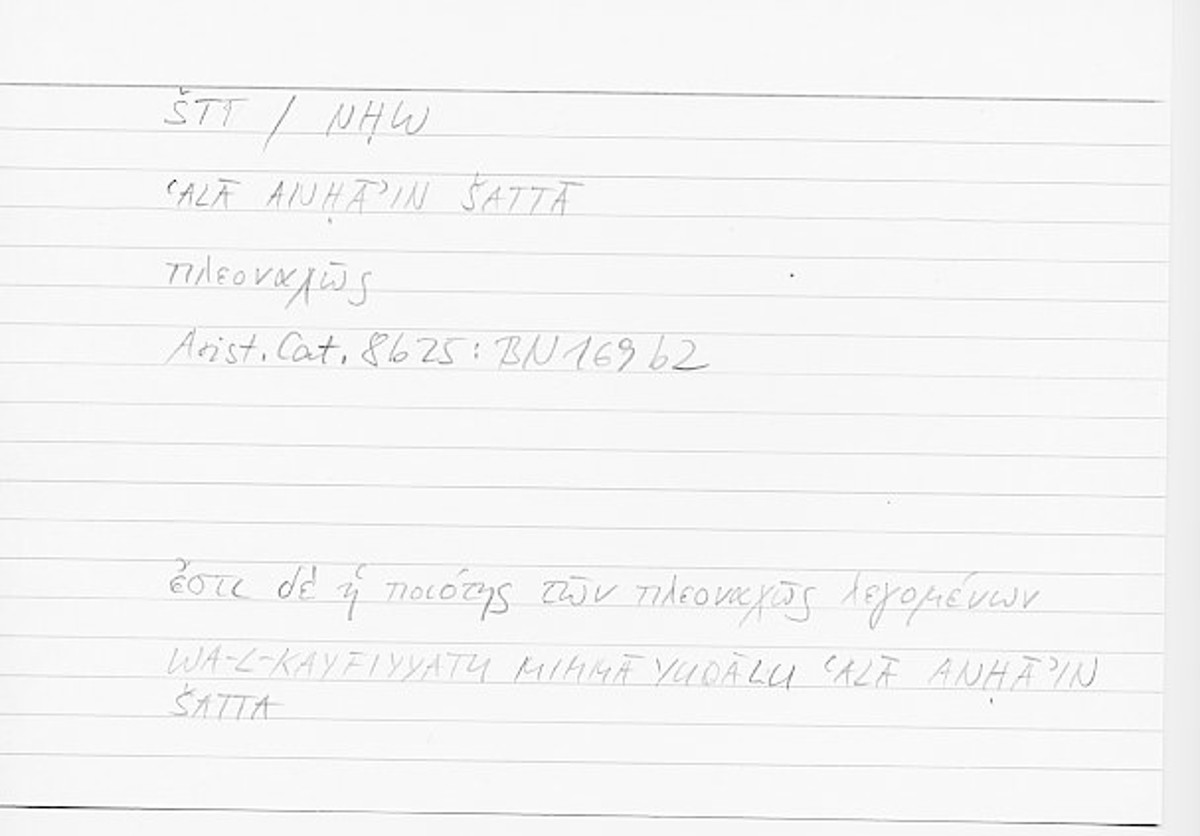 ŠTT / NḤW
ʿALĀ ANḤĀʾIN ŠATTĀ
πλεοναχῶς
Arist. Cat. 8b25 : BN 169b2
ἔστι δὲ ἡ ποιότης τῶν πλεοναχῶς λεγομένων
WA-L-KAYFIYYATU MIMMĀ YUQĀLU ʿALĀ ANḤĀʾIN
ŠATTA